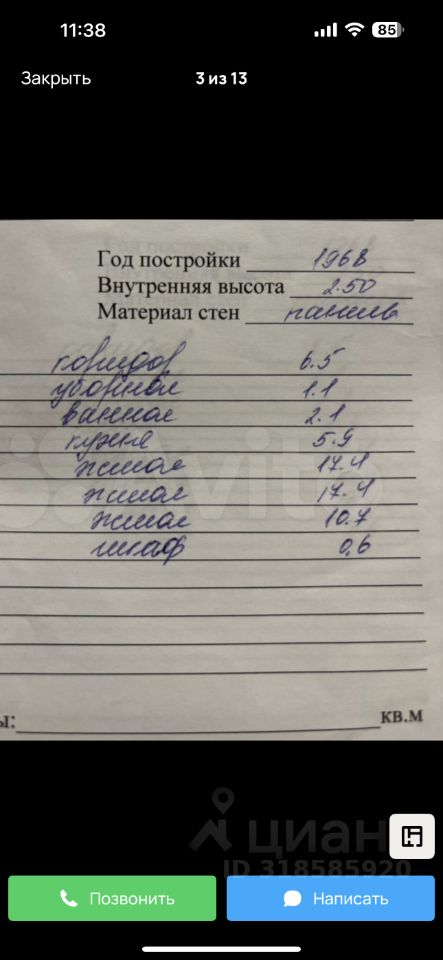 11:38
85
Закрыть
3 из 13
Год постройки 1968
Внутренняя высота 2.50
Материал стен панель
коридор 6.5
уборная 1.1
ванная 2.1
кухня 5.9
жилая 17.4
жилая 17.4
жилая 10.7
шкаф 0,6
Avito
ы: кв.м
циан
ID 318585920
Позвонить
Написать